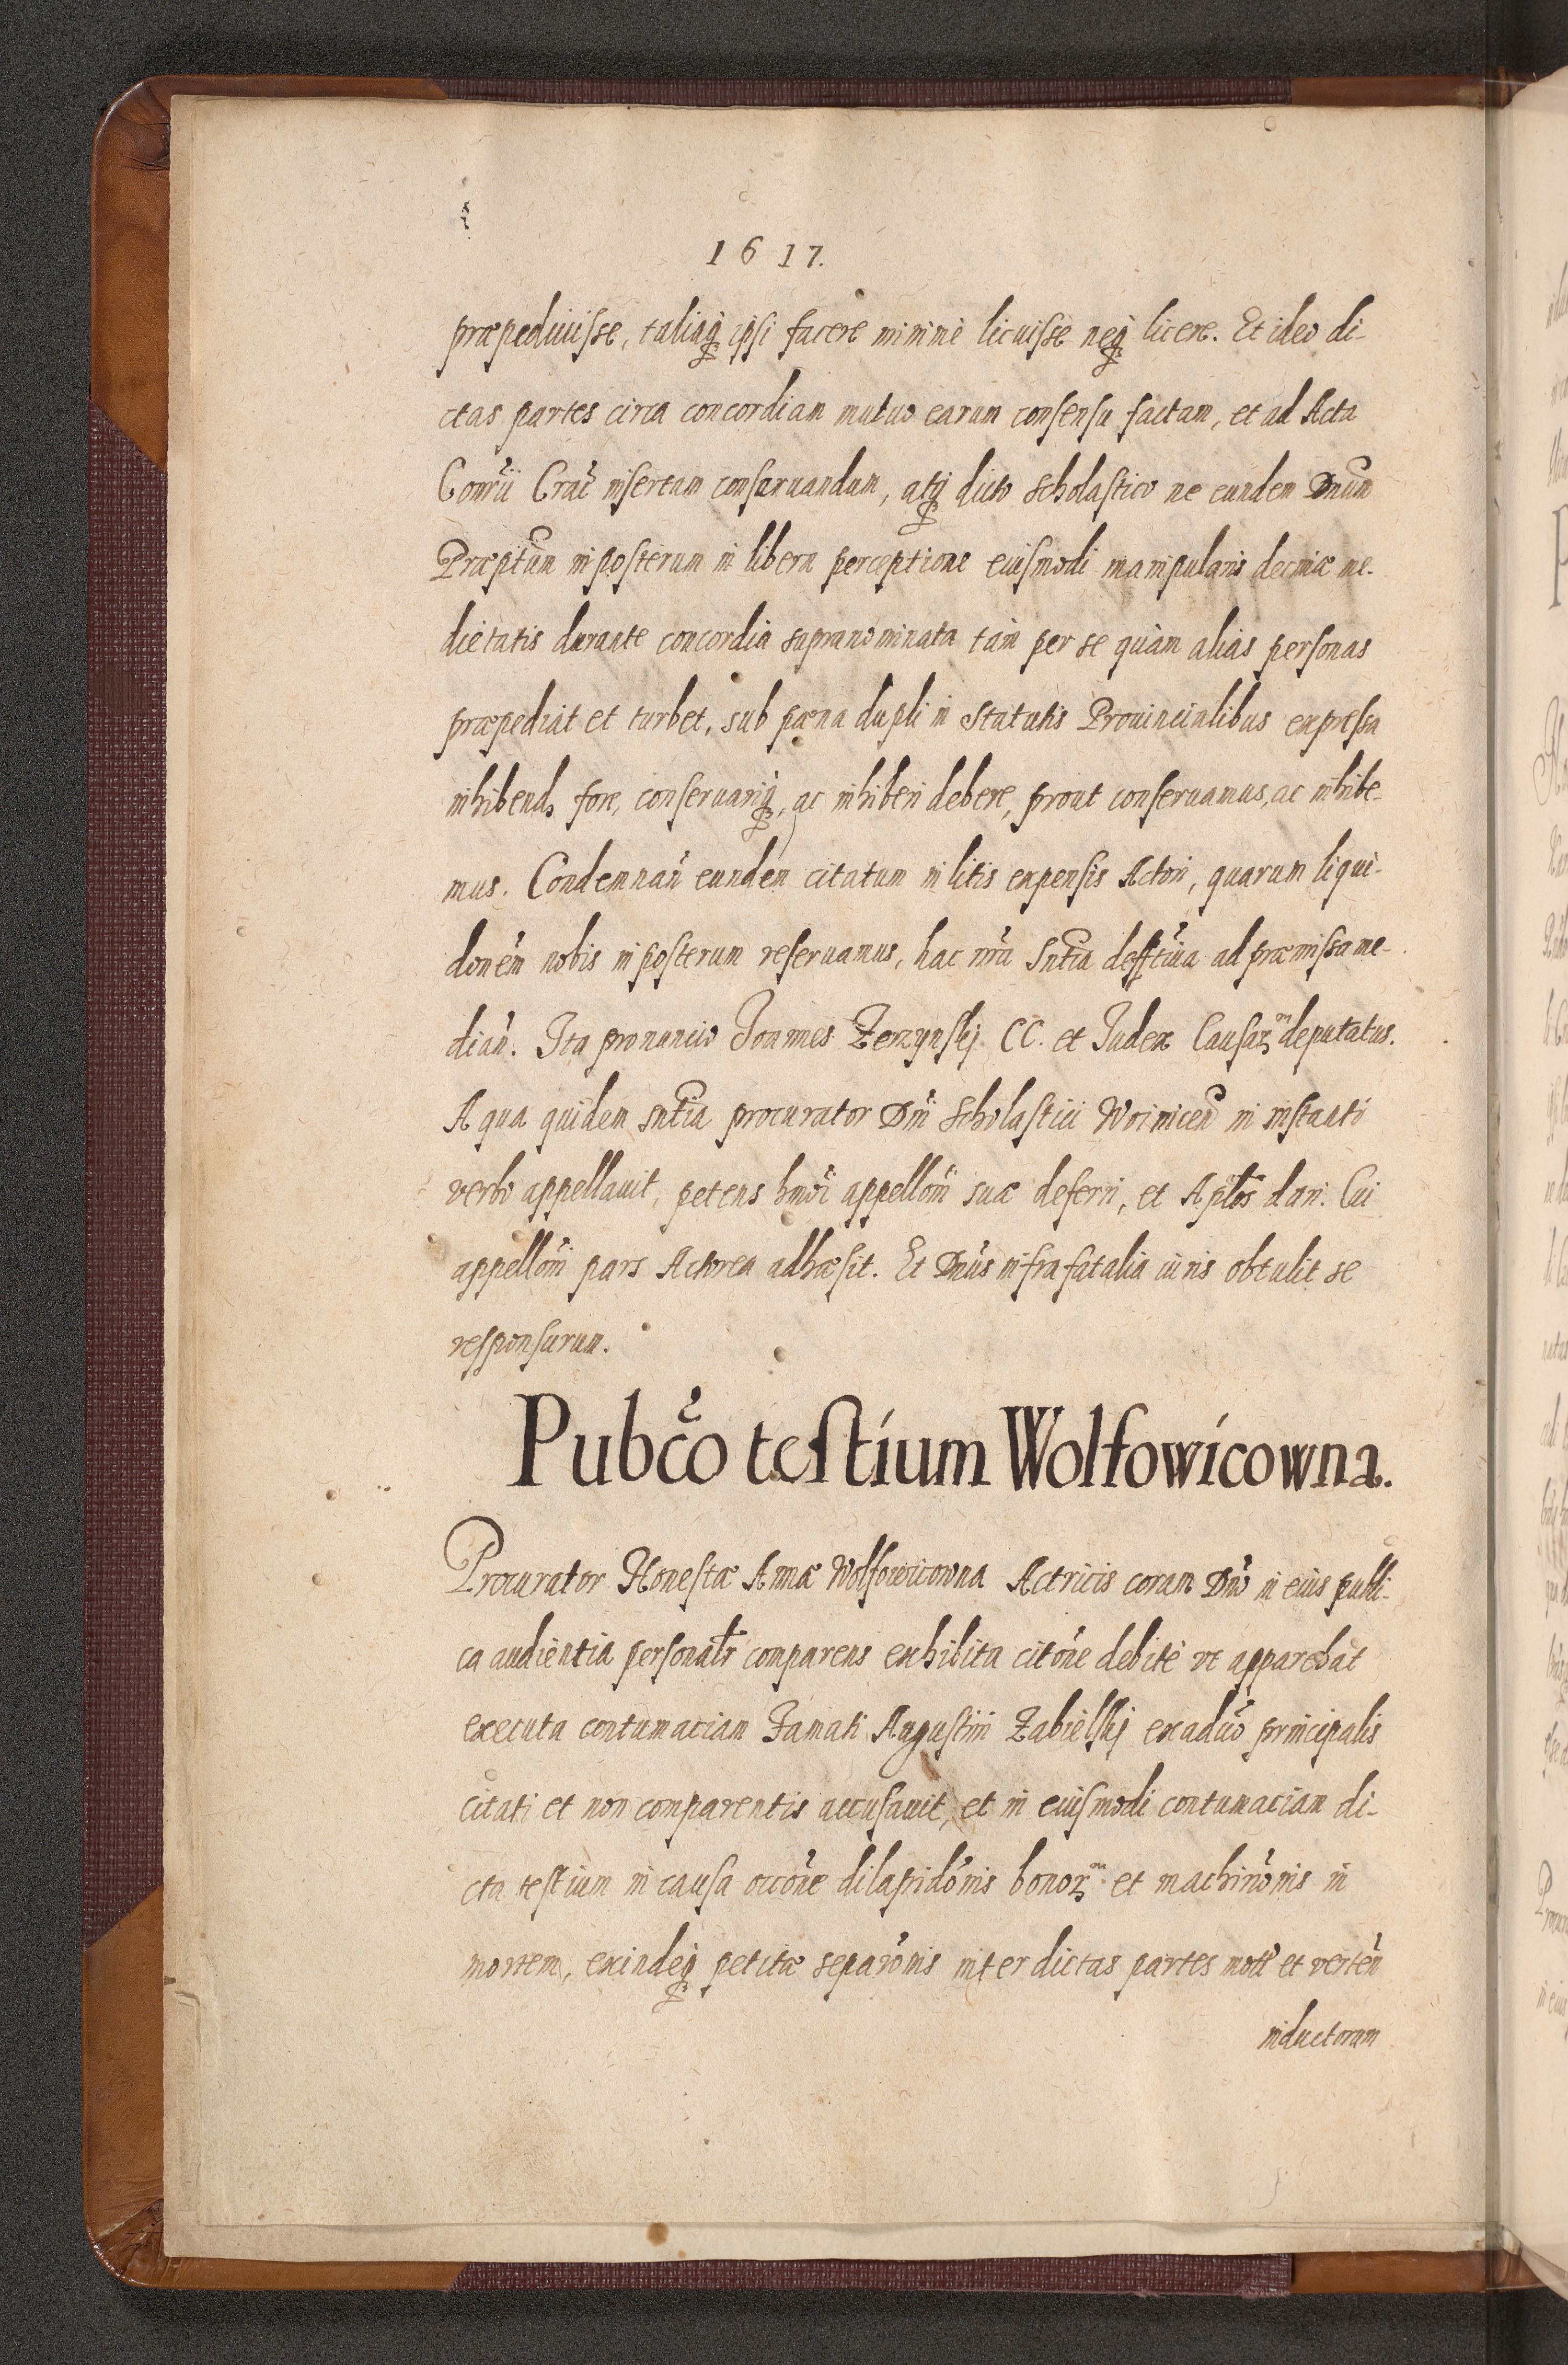 1617.
præpediuisse, taliaq ipsi facere minimè licuisse neq licere. Et ideo di-
ctas partes circa concordiam mutuo earum consensu factam, et ad Acta
Comrii Crac insertam conseruandum, atq dicto scholastico ne eundem Dnum
Præptum in posterum in libera perceptione eiusmodi manipularis decimæ me-
dietatis durante concordia supranominata tam per se quàm alias personas
præpediat et turbet, sub pæna dupli in Statutis Prouincialibus expressa
inhibend fore, conseruariq, ac inhiberi debere, prout conseruamus, ac inhibe-
mus. Condemnan eundem citatum in litis expensis Actori, quarum liqui-
donem nobis in posterum reseruamus, hac nra Sntia deffitiua ad præmissa me-
dian. Ita pronuncio Joannes Zerzynskj CC. et Judex Causarm deputatus.
A qua quidem sntia procurator Dni Scholastici Woinicen in instanti
verbo appellauit, petens hmoi appellomi suæ deferri, et Aptos dari. Cui
appellomi pars Actorea adhæsit. Et Dnus infra fatalia iuris obtulit se
responsurum.
Pubco testium Wolfowicowna.
Procurator Honestæ Annæ Wolfowicowna Actricis coram Dno in eius publi-
ca audientia personalr comparens exhibita citone debitè vt apparebat
executa contumaciam Famati Augustini Zabielskj ex aduo principalis
citati et non comparentis accusauit, et in eiusmodi contumaciam di-
cta testium in causa occone dilapidonis bonorm et machinonis in
mortem, exindeq petitæ separonis inter dictas partes mote et verten
inductorum